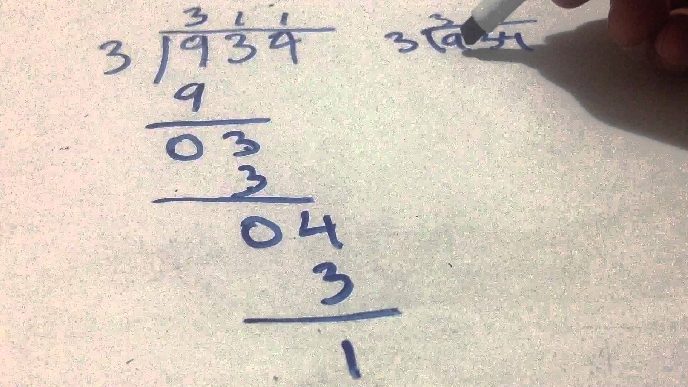 3 1 1
3 934
9
03
3
04
3
1
3
3 934